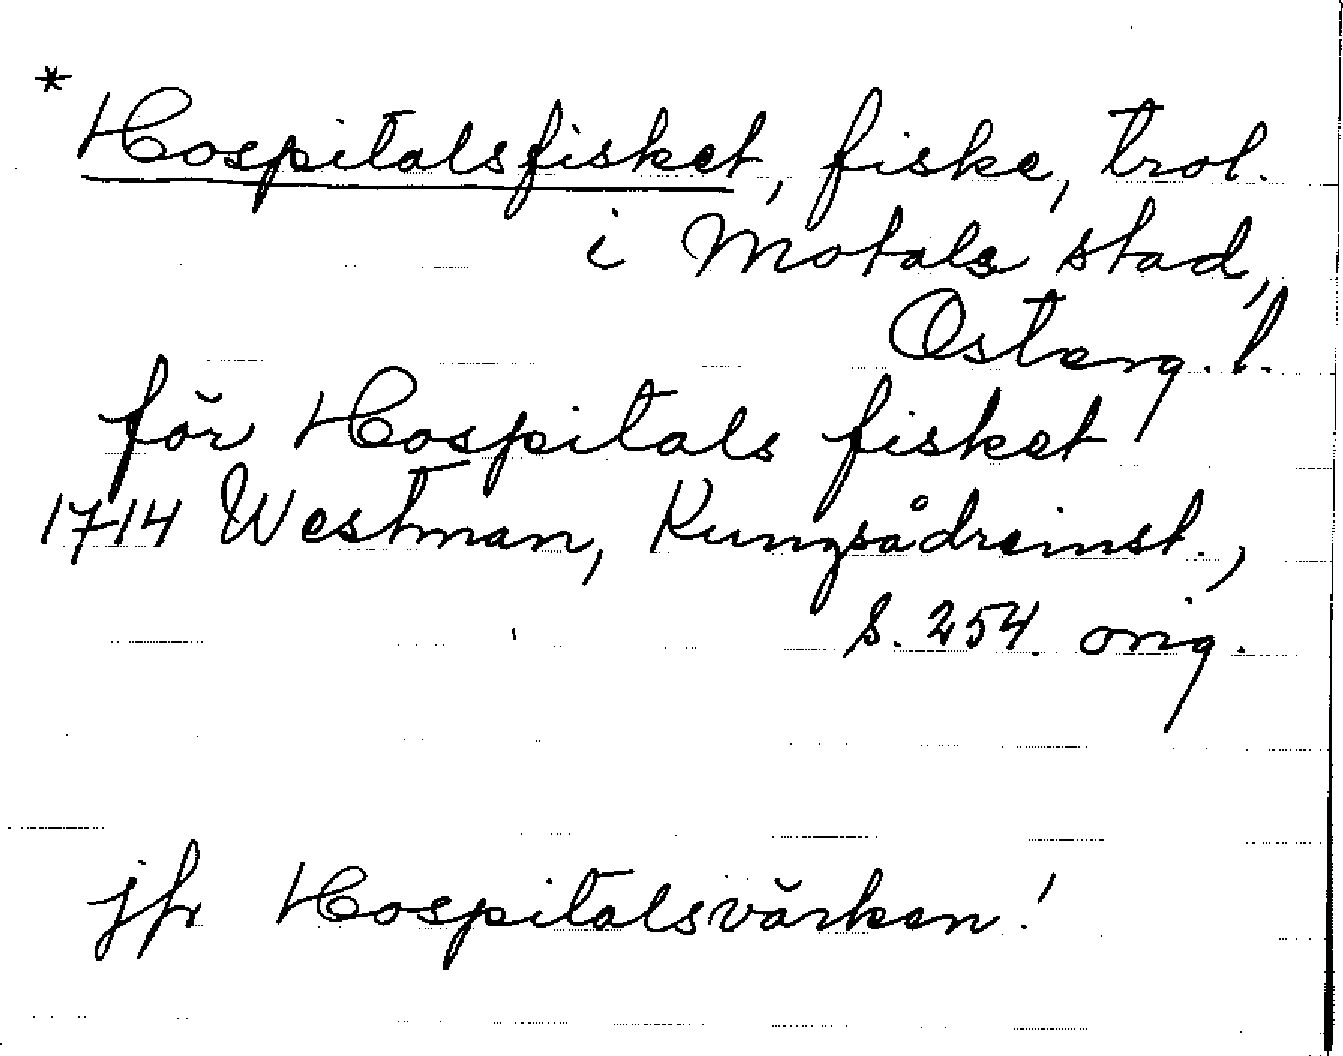 * Hospitalsfisket, fiske, trol.
i Motala stad,
Österg. l.
för Hospitals fisket
1714 Westman, Kungsådreinst.,
S. 254. orig.
jfr Hospitalsvärken!